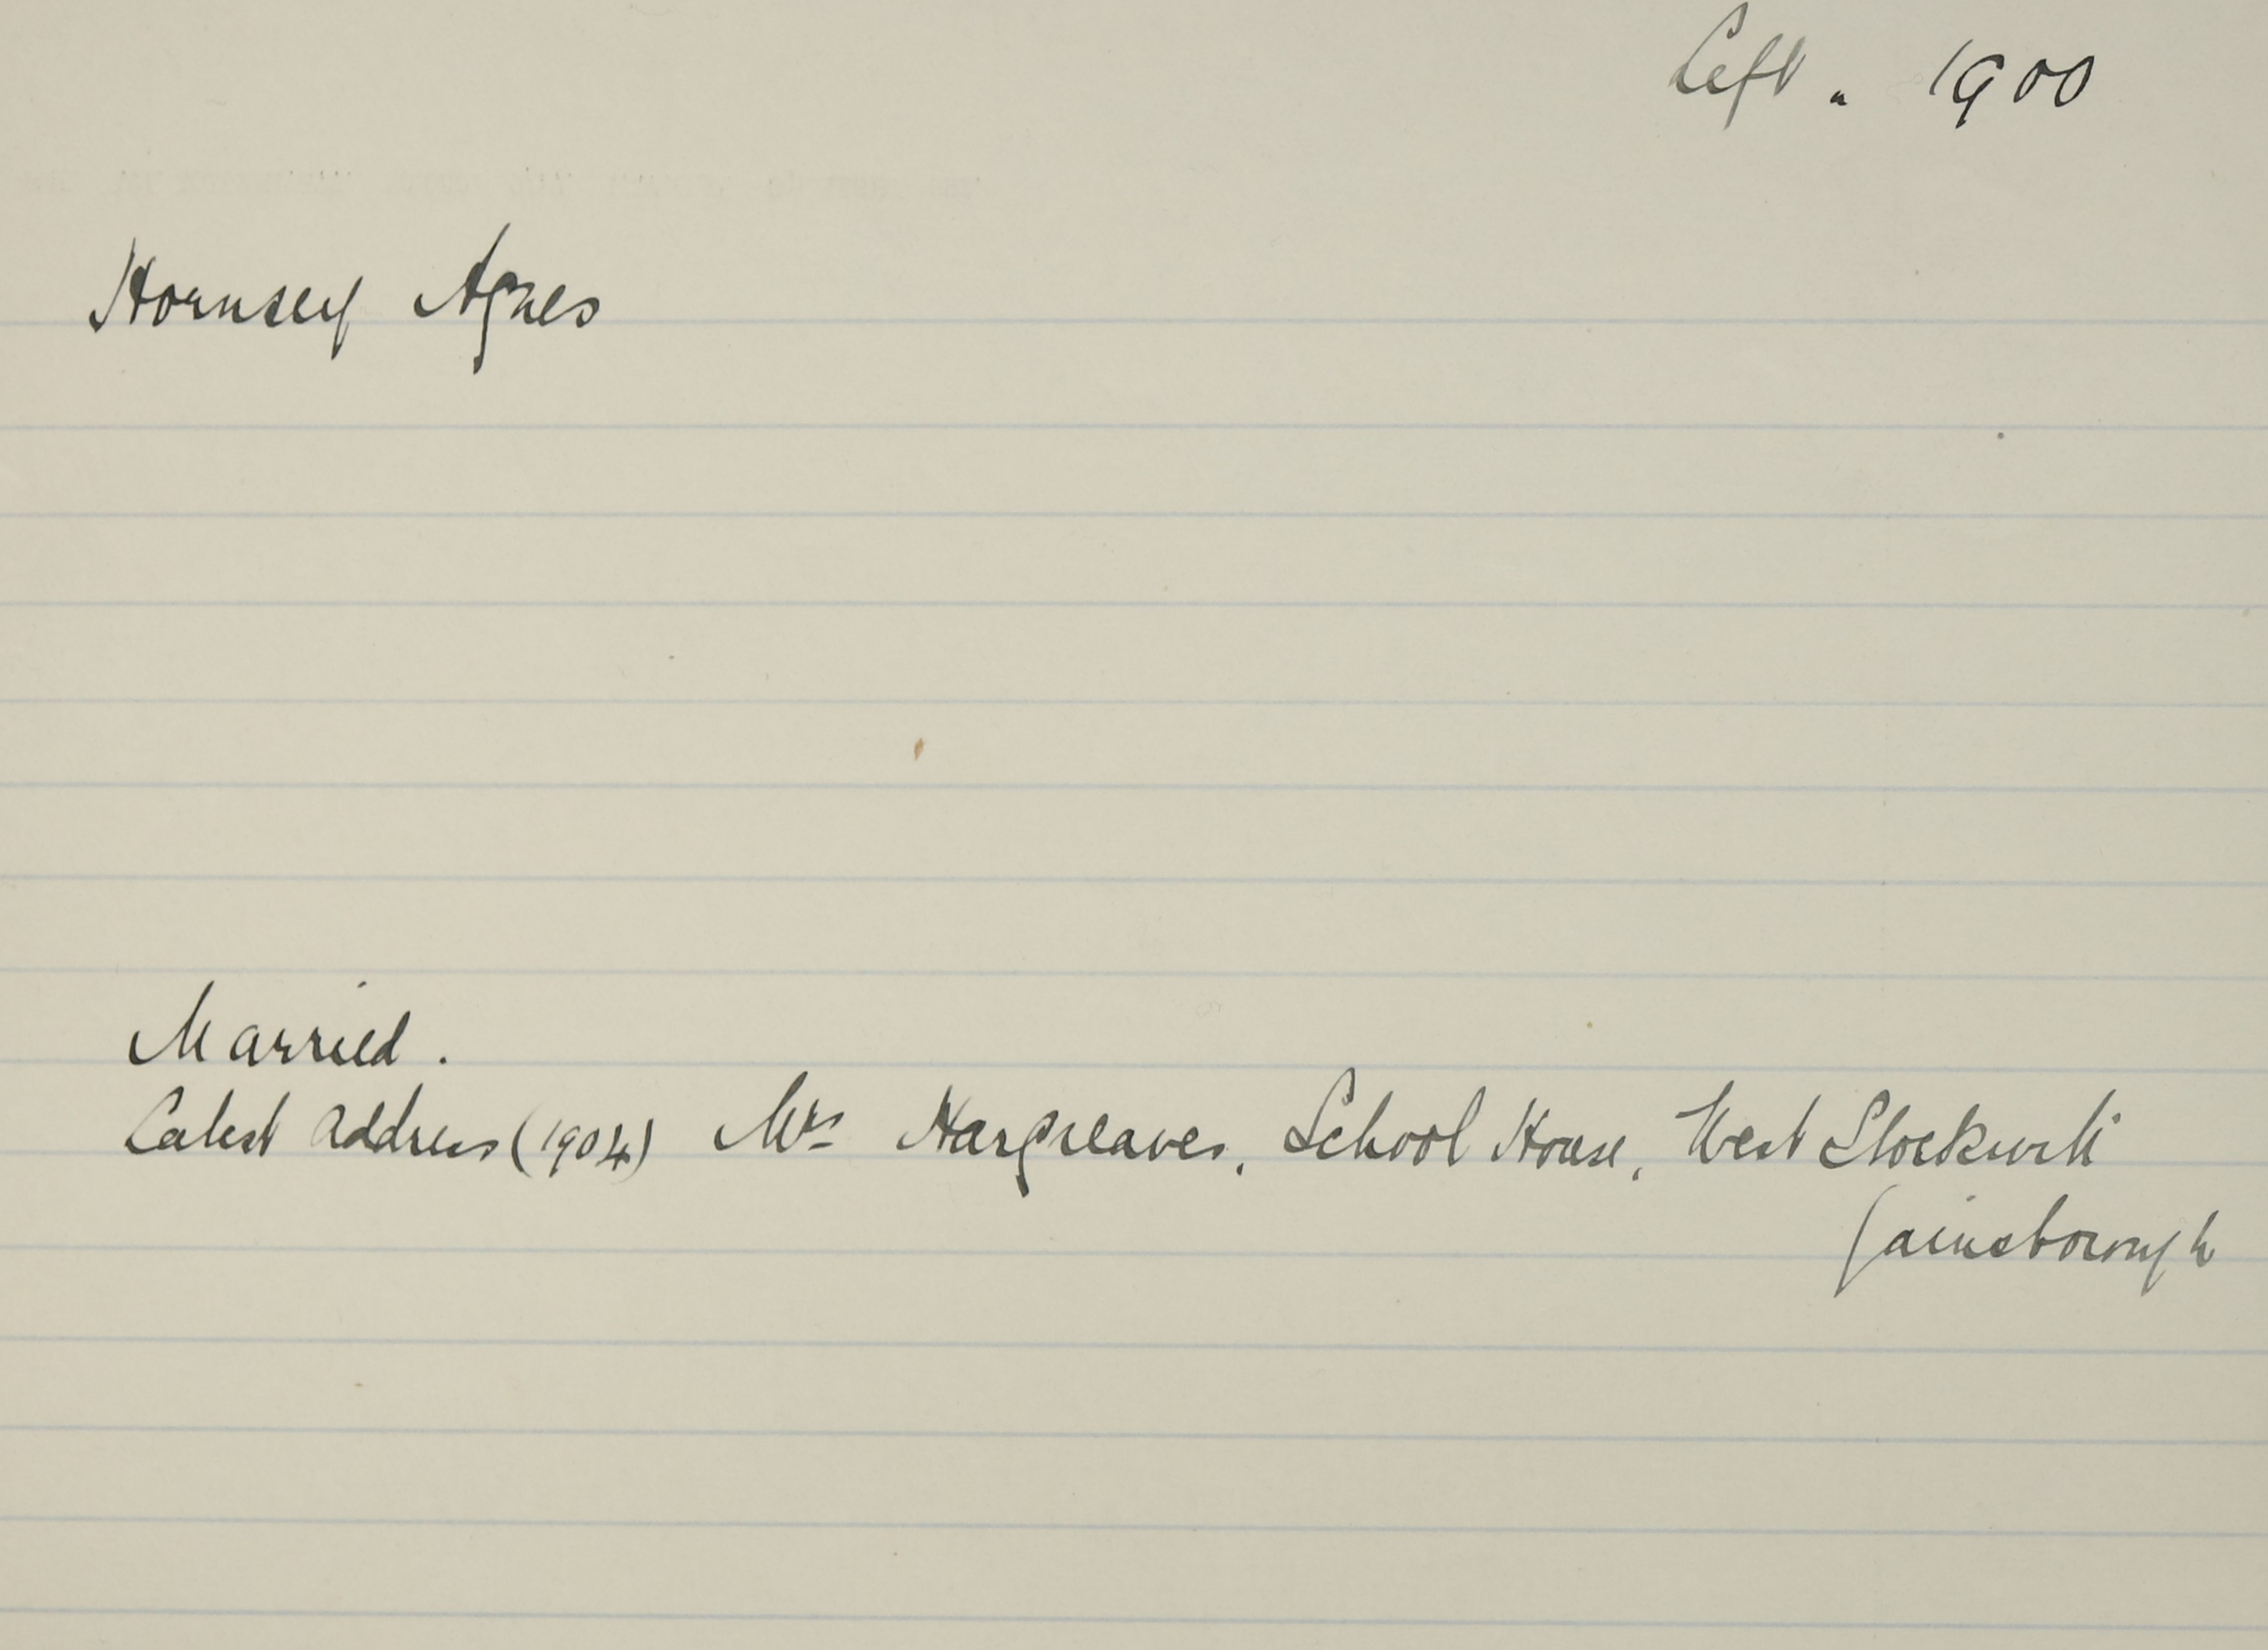 Left. 1900
Hornsey Agnes
Married.
Latest address (1904) Mrs Hargreaves, School House, West Stockwith
Gainsborough